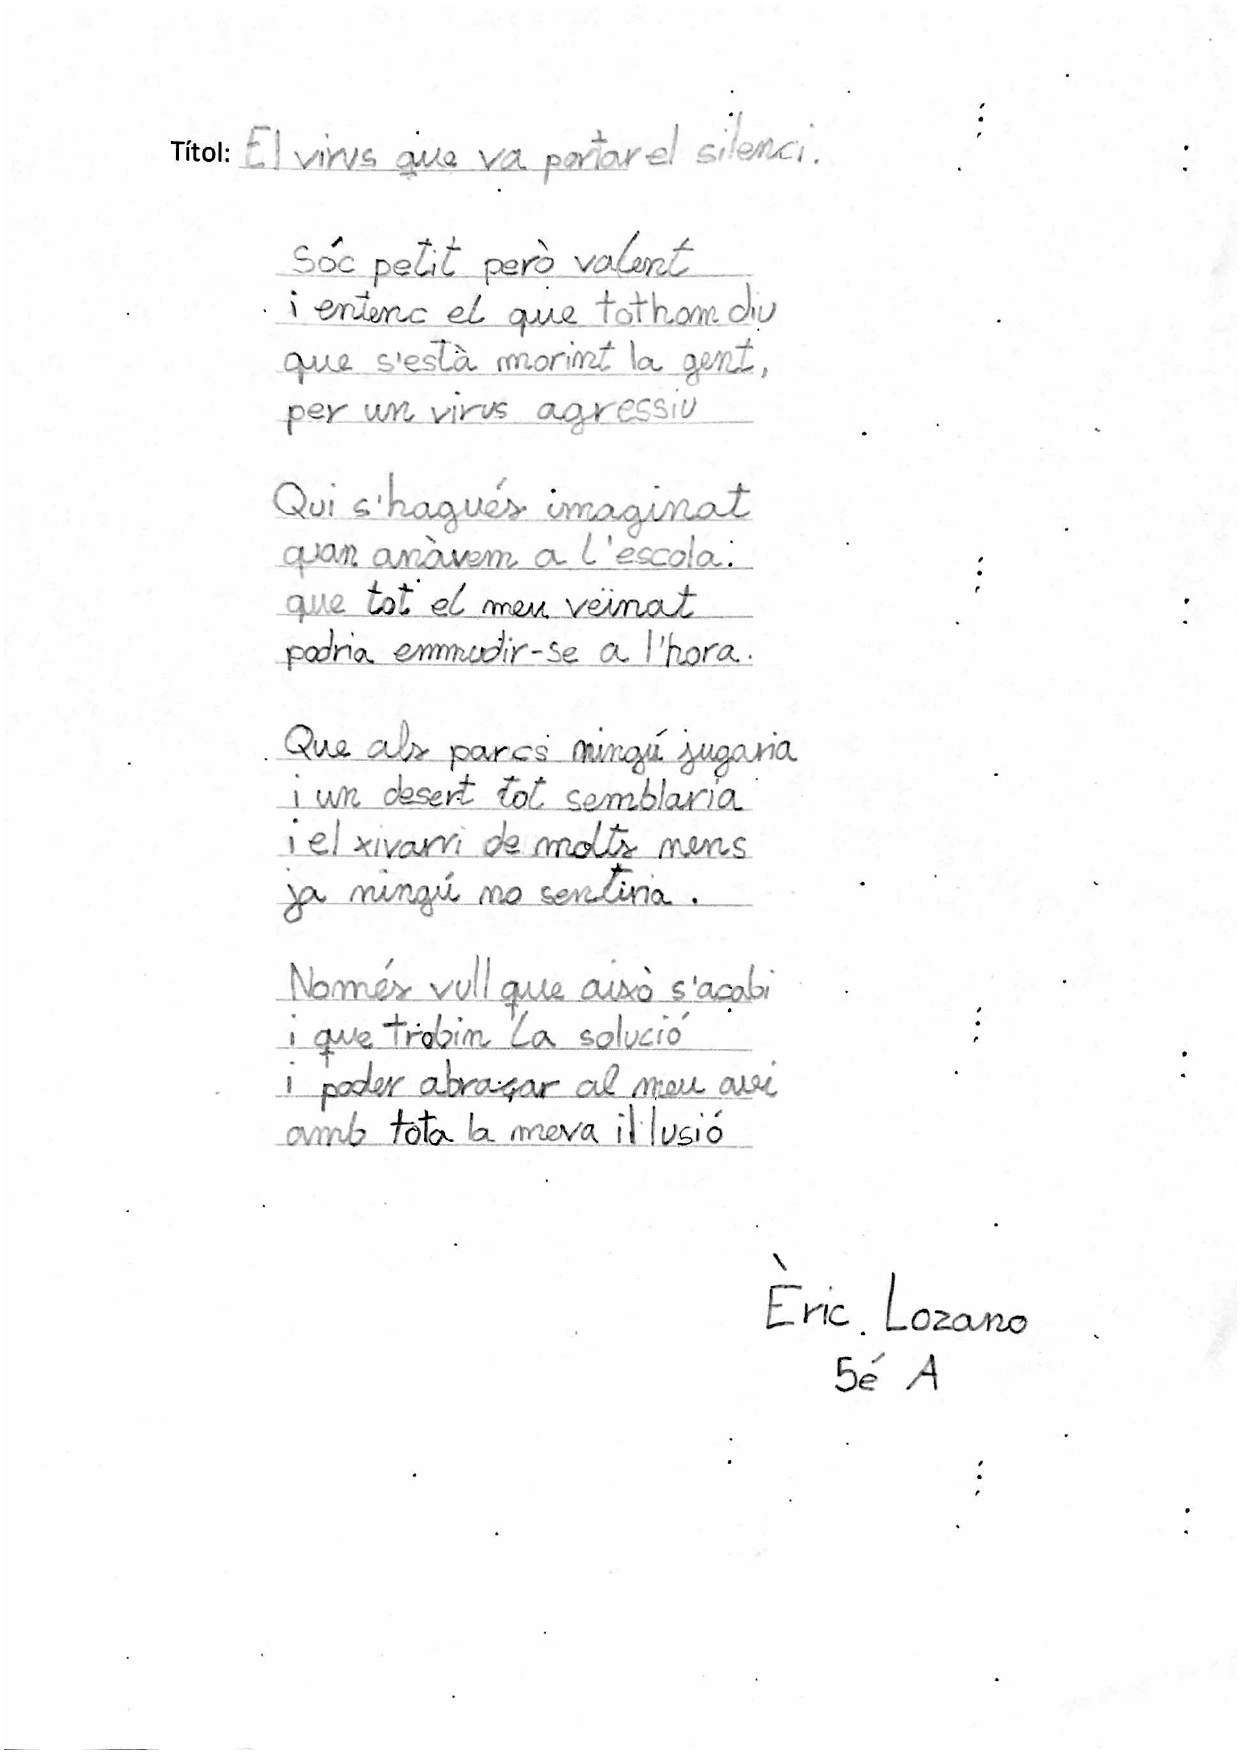 Títol: El virus que va portar el silenci.
Sóc petit però valent
i entenc el que tothom diu
que s'està morint la gent,
per un virus agressiu
Qui s'hagués imaginat
quan anàvem a l'escola.
que tot el meu veïnat
podria emmudir-se a l'hora.
Que als parcs ningú jugaria
i un desert tot semblaria
i el xivarri de molts nens
ja ningú no sentiria.
Només vull que això s'acabi
i que trobin la solució
i poder abraçar al meu avi
amb tota la meva il·lusió
Èric Lozano
5é A